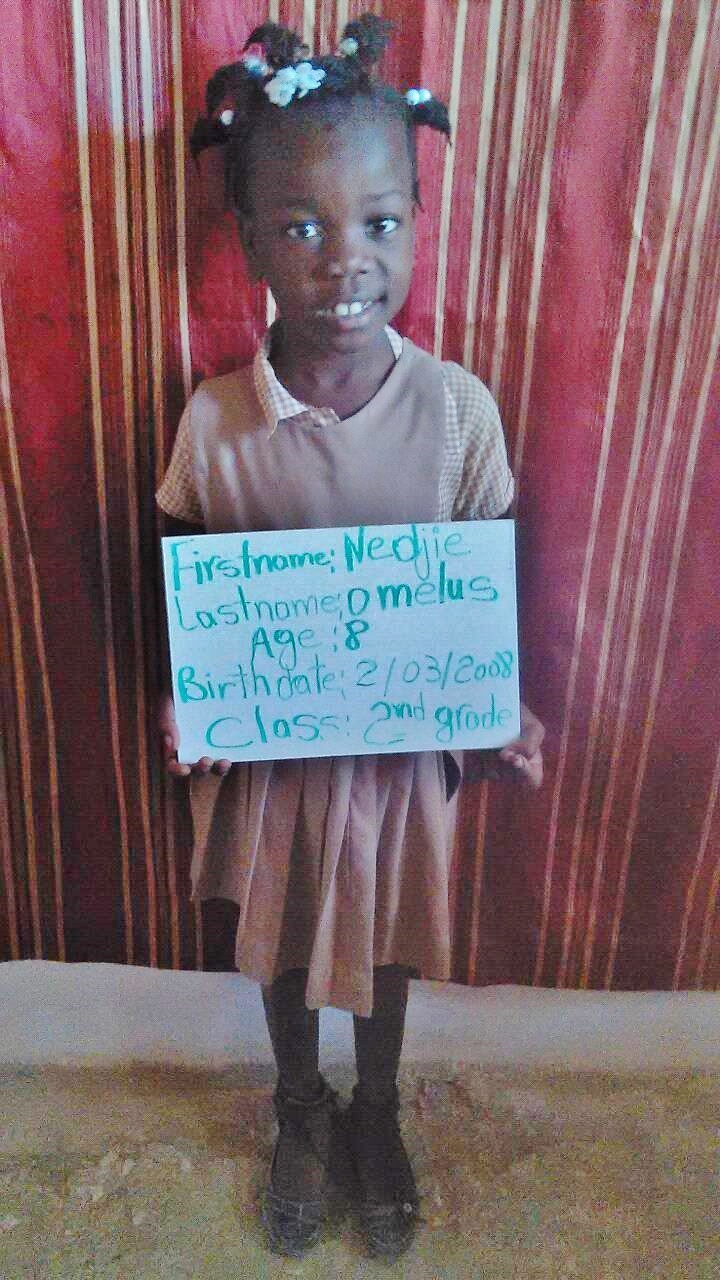 Firstname: Nedjie
Lastname: Omelus
Age: 8
Birthdate: 2/03/2008
Class: 2nd grade